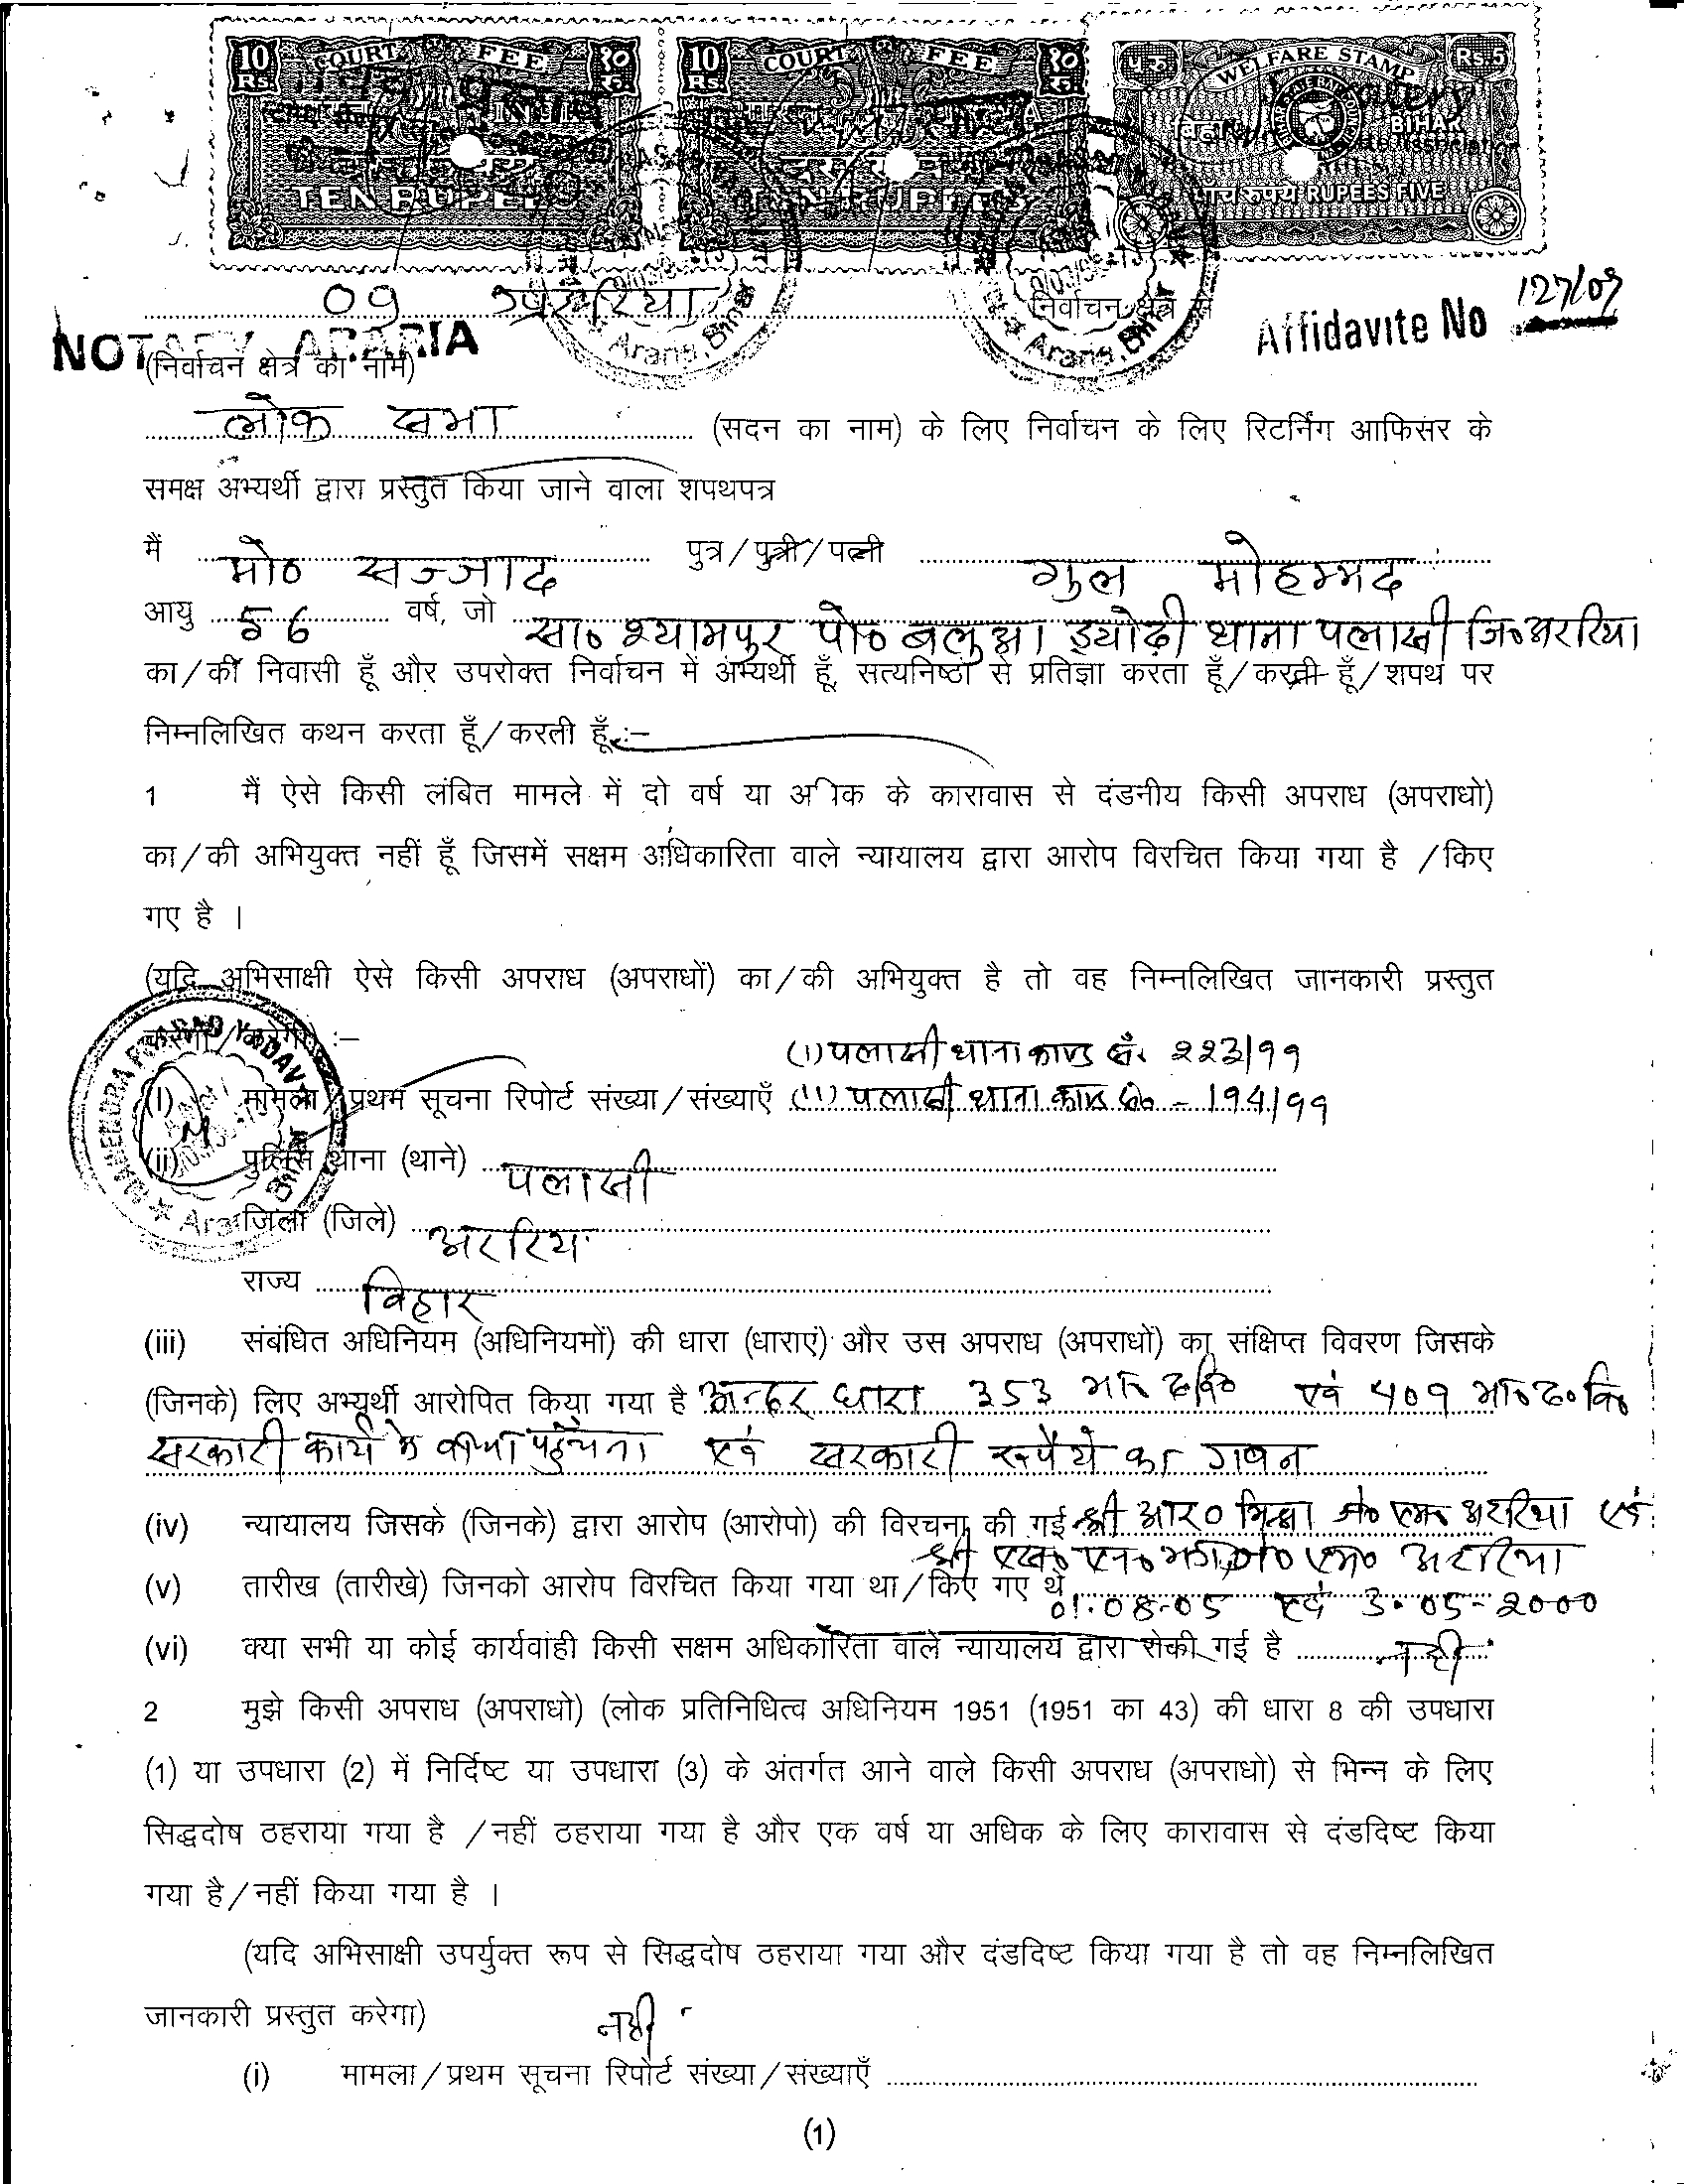 10 Rs. COURT FEE १० रु. 10 Rs. COURT FEE १० रु. ५ रु. WELFARE STAMP Rs. 5
INDIA
बिहार BIHAR
TEN RUPEES TEN RUPEES पाच रुपये RUPEES FIVE
09 अररिया निर्वाचन क्षेत्र से
NOTARY ARARIA Araria, Bihar Araria, Bihar Affidavite No 127/09
(निर्वाचन क्षेत्र का नाम)
लोक सभा (सदन का नाम) के लिए निर्वाचन के लिए रिटर्निंग आफिसर के
समक्ष अभ्यर्थी द्वारा प्रस्तुत किया जाने वाला शपथपत्र
मैं मो० सज्जाद पुत्र/पुत्री/पत्नी गुल मोहम्मद
आयु 56 वर्ष, जो सा० श्यामपुर पो० बलुआ ड्योढ़ी थाना पलासी जि० अररिया
का/की निवासी हूँ और उपरोक्त निर्वाचन में अभ्यर्थी हूँ, सत्यनिष्ठा से प्रतिज्ञा करता हूँ/करती हूँ/शपथ पर
निम्नलिखित कथन करता हूँ/करती हूँ :–
1 मैं ऐसे किसी लंबित मामले में दो वर्ष या के कारावास से दंडनीय किसी अपराध (अपराधो)
का/की अभियुक्त नहीं हूँ जिसमें सक्षम अधिकारिता वाले न्यायालय द्वारा आरोप विरचित किया गया है /किए
गए है ।
(यदि अभिसाक्षी ऐसे किसी अपराध (अपराधों) का/की अभियुक्त है तो वह निम्नलिखित जानकारी प्रस्तुत
करेगा/करेगी) :–
(1) पलासी थाना काण्ड सं. 223/99
(i) मामला/प्रथम सूचना रिपोर्ट संख्या/संख्याएँ (11) पलासी थाना काण्ड सं० - 194/99
(ii) पुलिस थाना (थाने) पलासी
जिला (जिले) अररिया
राज्य बिहार
(iii) संबंधित अधिनियम (अधिनियमों) की धारा (धाराएं) और उस अपराध (अपराधों) का संक्षिप्त विवरण जिसके
(जिनके) लिए अभ्यर्थी आरोपित किया गया है अन्दर धारा 353 भा० द० वि० एवं 409 भा० द० वि०
सरकारी कार्य में बाधा पहुँचना एवं सरकारी रूपैये का गबन
(iv) न्यायालय जिसके (जिनके) द्वारा आरोप (आरोपो) की विरचना की गई श्री आर० मिश्रा जे० एम० अररिया एवं
श्री एस० एन० जे० एम० अररिया
(v) तारीख (तारीखे) जिनको आरोप विरचित किया गया था/किए गए थे 01.08.05 एवं 3.05-2000
(vi) क्या सभी या कोई कार्यवाही किसी सक्षम अधिकारिता वाले न्यायालय द्वारा रोकी गई है नहीं
2 मुझे किसी अपराध (अपराधो) (लोक प्रतिनिधित्व अधिनियम 1951 (1951 का 43) की धारा 8 की उपधारा
(1) या उपधारा (2) में निर्दिष्ट या उपधारा (3) के अंतर्गत आने वाले किसी अपराध (अपराधो) से भिन्न के लिए
सिद्धदोष ठहराया गया है /नहीं ठहराया गया है और एक वर्ष या अधिक के लिए कारावास से दंडदिष्ट किया
गया है/नहीं किया गया है ।
(यदि अभिसाक्षी उपर्युक्त रूप से सिद्धदोष ठहराया गया और दंडदिष्ट किया गया है तो वह निम्नलिखित
जानकारी प्रस्तुत करेगा) नहीं
(i) मामला/प्रथम सूचना रिपोर्ट संख्या/संख्याएँ
(1)